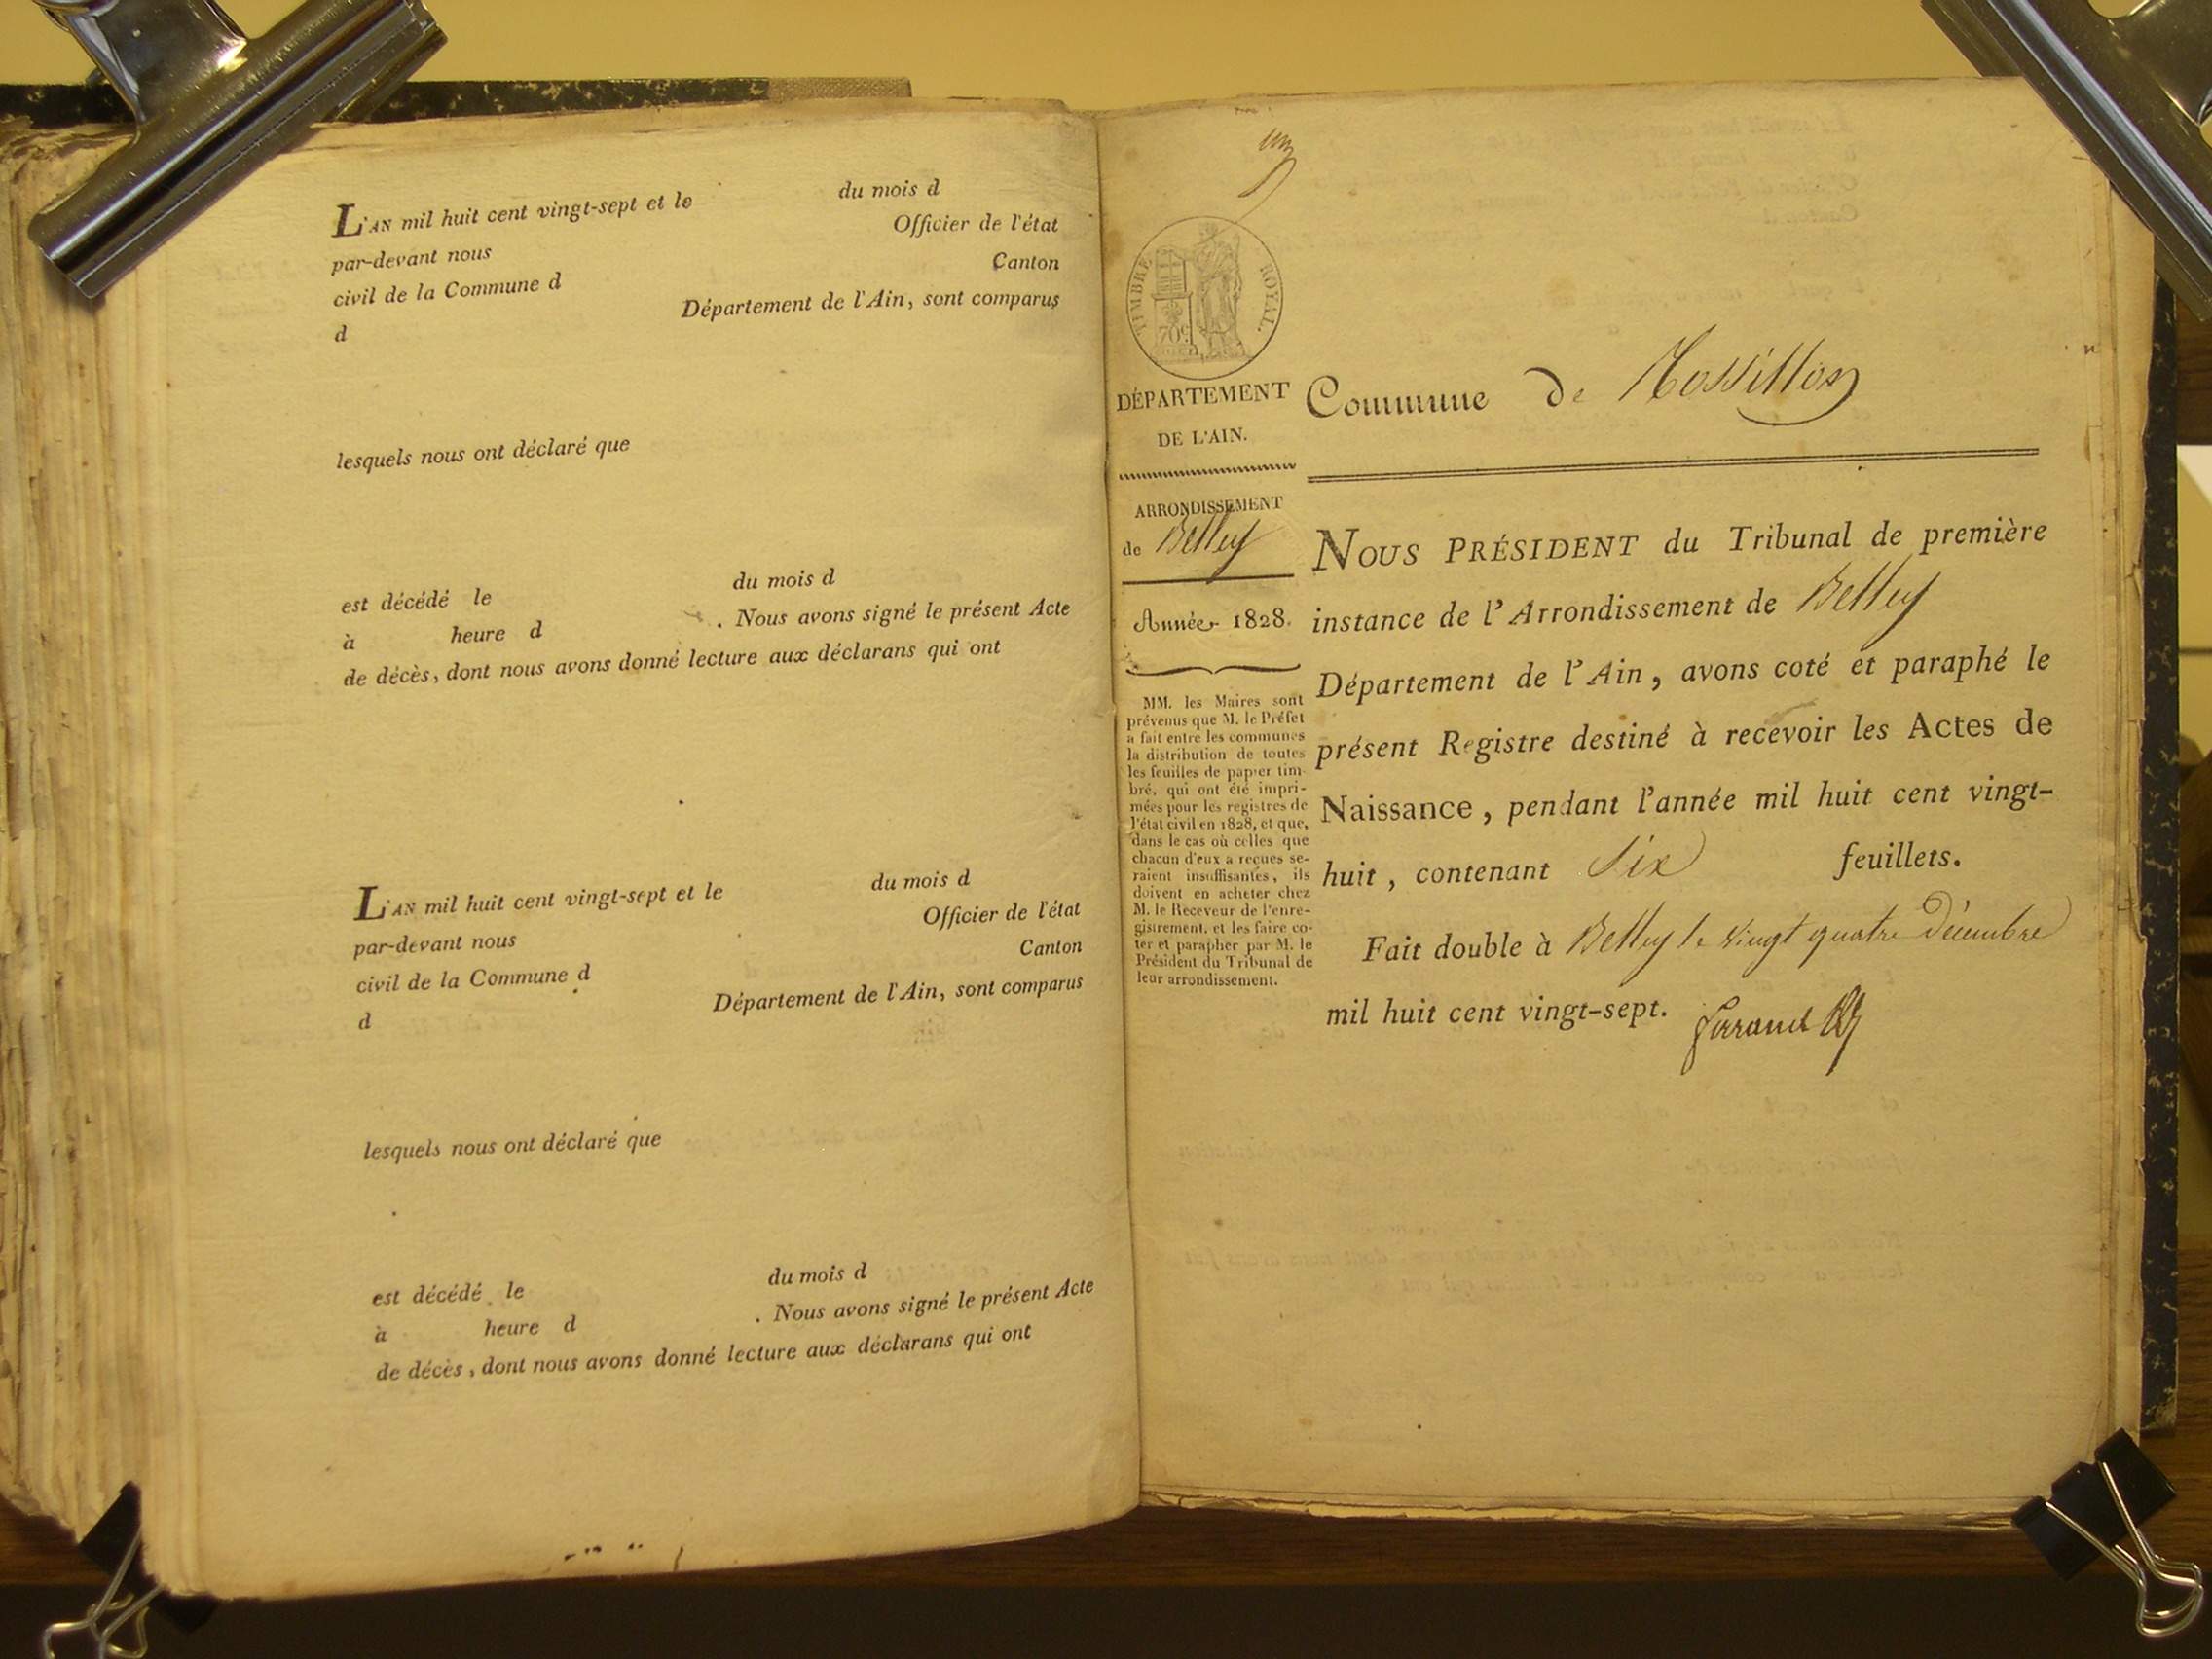 L'AN mil huit cent vingt-sept et le du mois d
par-devant nous Officier de l'état
civil de la Commune d Canton
d Département de l'Ain, sont comparus
lesquels nous ont déclaré que
est décédé le du mois d
à heure d . Nous avons signé le présent Acte
de décès, dont nous avons donné lecture aux déclarans qui ont
L'AN mil huit cent vingt-sept et le du mois d
par-devant nous Officier de l'état
civil de la Commune d Canton
d Département de l'Ain, sont comparus
lesquels nous ont déclaré que
est décédé le du mois d
à heure d . Nous avons signé le présent Acte
de décès, dont nous avons donné lecture aux déclarans qui ont
TIMBRE ROYAL.
70c
DÉPARTEMENT
DE L'AIN.
ARRONDISSEMENT
de Belley
Année 1828.
MM. les Maires sont
prévenus que M. le Préfet
a fait entre les communes
la distribution de toutes
les feuilles de papier tim-
bré, qui ont été impri-
mées pour les registres de
l'état civil en 1828, et que,
dans le cas où celles que
chacun d'eux a reçues se-
raient insuffisantes, ils
doivent en acheter chez
M. le Receveur de l'enre-
gistrement, et les faire co-
ter et parapher par M. le
Président du Tribunal de
leur arrondissement.
Commune de Rossillon
NOUS PRÉSIDENT du Tribunal de première
instance de l'Arrondissement de Belley
Département de l'Ain, avons coté et paraphé le
présent Registre destiné à recevoir les Actes de
Naissance, pendant l'année mil huit cent vingt-
huit, contenant Six feuillets.
Fait double à Belley le vingt quatre décembre
mil huit cent vingt-sept.